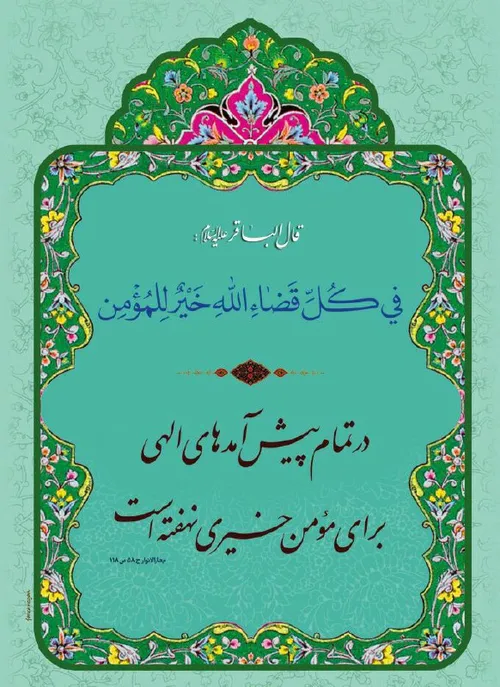 قال الباقر علیه‌السلام :
في كُلِّ قَضَاءِ اللهِ خَيْرٌ لِلْمُؤْمِن
در تمام پیش آمدهای الهی
برای مؤمن خیری نهفته است
بحارالانوار ج ۵۸ ص ۱۱۸